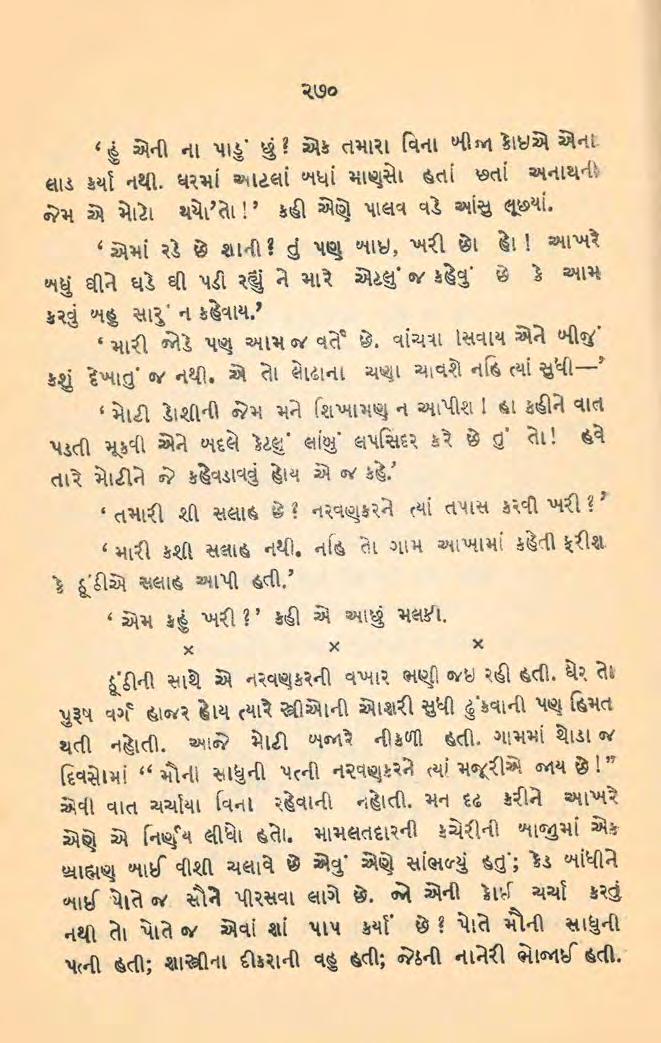 ૨૭૦
‘ હું એની ના પાડું છું ? એક તમારા વિના બીજા કોઇએ એના
લાડ કર્યા નથી. ઘરમાં આટલાં બધાં માણસો હતાં છતાં અનાથની
જેમ એ મોટો થયો’તો ! ’ કહી એણે પાલવ વડે આંસુ લૂછયાં.
‘ એમાં રડે છે શાની ? તું પણ બાઇ, ખરી છો હો ! આખરે
બધું ઘીને ઘડે ઘી પડી રહ્યું ને મારે એટલું જ કહેવું છે કે આમ
કરવું બહુ સારું ન કહેવાય.’
‘ મારી જોડે પણ આમ જ વર્તે છે. વાંચવા સિવાય એને બીજું
કશું દેખાતું જ નથી. એ તો લોઢાના ચણા ચાવશે નહિ ત્યાં સુધી—’
‘ મોટી ડોશીની જેમ મને શિખામણ ન આપીશ ! હા કહીને વાત
પડતી મૂકવી એને બદલે કેટલું લાંબું લપસિંદર કરે છે તું તો ! હવે
તારે મોટીને જે કહેવડાવવું હોય એ જ કહે.’
‘ તમારી શી સલાહ છે ? નરવણકરને ત્યાં તપાસ કરવી ખરી ? ’
‘ મારી કશી સલાહ નથી. નહિ તો ગામ આખામાં કહેતી ફરીશ
કે ઠૂંઠીએ સલાહ આપી હતી.’
‘ એમ કહું ખરી ? ’ કહી એ આછું મલકી.
× × ×
ઠૂંઠીની સાથે એ નરવણકરની વખાર ભણી જઇ રહી હતી. ઘેર તો
પુરૂષ વર્ગ હાજર હોય ત્યારે સ્ત્રીઓની ઓશરી સુધી ઢુંકવાની પણ હિંમત
થતી નહોતી. આજે મોટી બજારે નીકળી હતી. ગામમાં થોડા જ
દિવસોમાં “ મૌની સાધુની પત્ની નરવણકરને ત્યાં મજૂરીએ જાય છે ! ”
એવી વાત ચર્ચાયા વિના રહેવાની નહોતી. મન દૃઢ કરીને આખરે
એણે એ નિર્ણય લીધો હતો. મામલતદારની કચેરીની બાજુમાં એક
બ્રાહ્મણ બાઈ વીશી ચલાવે છે એવું એણે સાંભળ્યું હતું; કેડ બાંધીને
બાઈ પોતે જ સૌને પીરસવા લાગે છે. જો એની કોઈ ચર્ચા કરતું
નથી તો પોતે જ એવાં શાં પાપ કર્યાં છે ? પોતે મૌની સાધુની
પત્ની હતી; શાસ્ત્રીના દીકરાની વહુ હતી; જેઠની નાનેરી ભોજાઈ હતી.